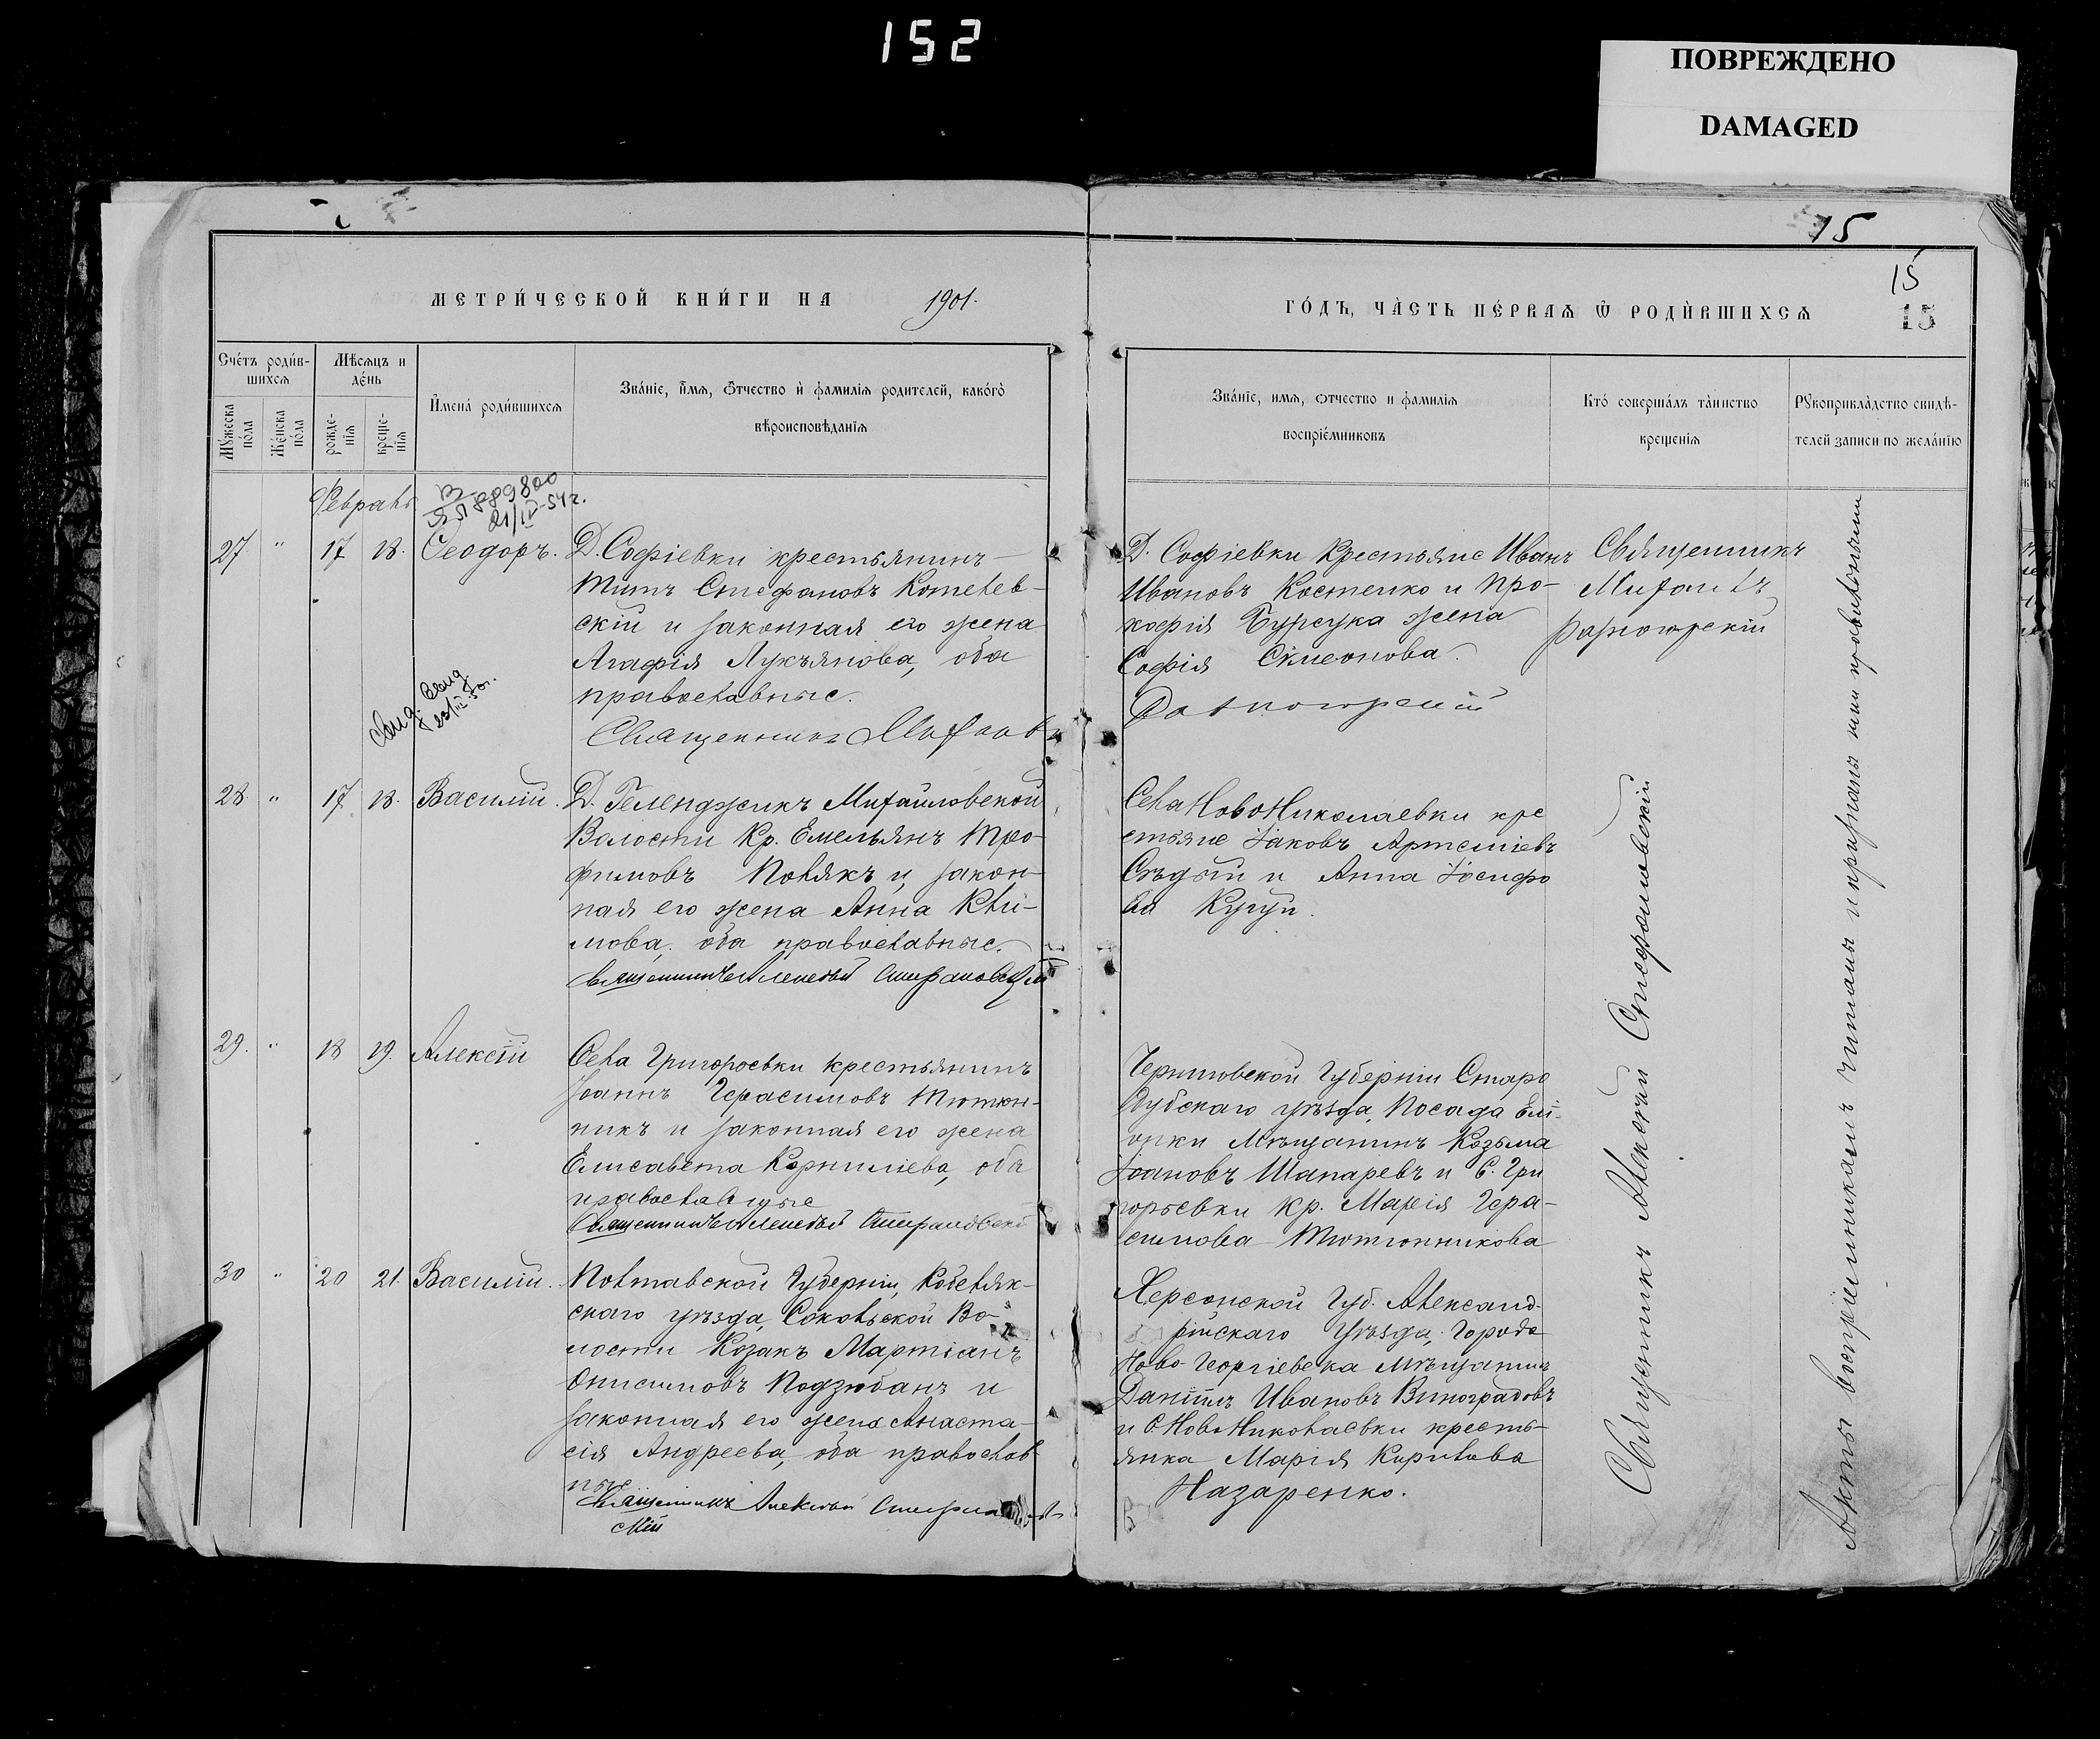 152
ПОВРЕЖДЕНО
DAMAGED
15
15
15
МЕТРИ́ЧЕСКОЙ КНИ́ГИ НА 1901.
ГО́ДЪ, ЧА̀СТЬ ПЕ́РВАѦ Ѿ РОДИ́ВШИХСѦ
Сче́тъ роди́в-
шихсѧ
Мѣсѧцъ и
де́нь
Мꙋ́жеска
по́ла
Же́нска
по́ла
рожде-
нїѧ
креще-
нїѧ
И҆мена́ роди́вшихсѧ
Зва́нїе, и҆́мѧ, ѻ҆́тчество и҆ фамилїѧ родителей, како́гѡ
вѣроисповѣданїѧ
Зва́нїе, имѧ, ѻтчество и фамилїѧ
воспрїе́мниковъ
Кто̀ соверша́лъ та̀инство
крещенїѧ
Рꙋкоприкла́дство свидѣ-
телей записи по жела́нїю
Февраль
889800
21/IV-54г.
27. " 17 18. Ѳеодоръ.
Д. Софіевки крестьянинъ
Титъ Стефановъ Котелев-
скій и законная его жена
Агафія Лукьянова, оба
православные.
Священникъ Михаилъ
Разногорскій
Д. Софіевки Крестьяне Иванъ
Ивановъ Костенко и Про-
кофія Бурсука жена
Софія Симеонова.
Священникъ
Михаилъ
Разногорскій
28. " 17. 18. Василій.
Д. Геленджикъ Михайловской
Волости Кр. Емельянъ Тро-
фимовъ Полякъ и закон-
ная его жена Анна Кли-
мова, оба православные.
Священникъ Алексѣй Стефановскій
Села НовоНиколаевки кре
стьяне Іаковъ Артеміевъ
Сѣдый и Анна Іосифо
ва
29. " 18 19. Алексій
Села Григорьевки крестьянинъ
Іоаннъ Герасимовъ Тютюн-
никъ и законная его жена
Елисавета Корниліева, оба
православные
Священникъ Алексѣй Стефановскій
Черниговской Губерніи Старо
дубскаго уѣзда, Посада Ели-
онки Мѣщанинъ Козьма
Іоановъ Шапаревъ и С. Гри
горьевки Кр. Марія Гера-
симова Тютюнникова
30 " 20 21. Василій.
Полтавской Губерніи, Кобеляк-
скаго уѣзда, Сокольской Во-
лости Козакъ Мартіанъ
Онисимовъ Подзюбанъ и
законная его жена Анаста-
сія Андреева, оба православ-
ные
Священникъ Алексѣй Стефановскій
Херсонской Губ. Александ-
рійскаго Уѣзда, Города
Ново-Георгіевска Мѣщанинъ
Даніилъ Ивановъ Виноградовъ
и С. НовоНиколаевки кресть-
янка Марія Кирилова
Назаренко.
Священникъ Алексѣй Стефановскій
Акты воспріемникамъ читаны и признаны ими правильными